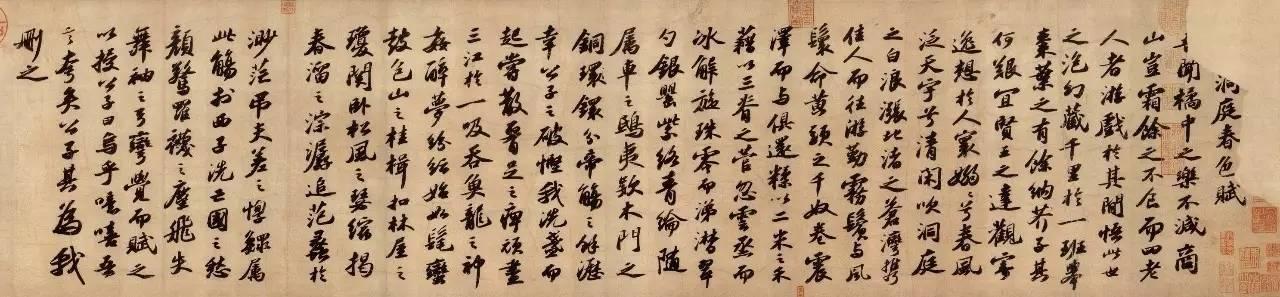 洞庭春色賦
吾聞橘中之樂不減商
山豈霜餘之不食而四老
人者游戲於其間悟此世
之泡幻藏千里於一班舉
棗葉之有餘納芥子其
何艱宜賢王之達觀寄
逸想於人寰嫋嫋兮春風
泛天宇兮清閑吹洞庭
之白浪漲北渚之蒼灣攜
佳人而往游勤霧鬢與風
鬟命黃頭之千奴卷震
澤而與俱還糅以二米之禾
藉以三脊之菅忽雲烝而
冰解旋珠零而涕潸翠
勺銀罌紫絡青綸隨
属車之鴟夷款木門之
銅鐶分帝觴之餘瀝
幸公子之破慳我洗盞而
起嘗散腰足之痺頑盡
三江於一吸吞魚龍之神
姦醉夢紛紜始如髦蠻
鼓包山之桂楫扣林屋之
瓊関卧松風之瑟縮揭
春溜之淙潺追范蠡於
渺茫吊夫差之惸鰥属
此觴於西子洗亡國之愁
顏驚羅襪之塵飛失
舞袖之弓彎覺而賦之
以授公子曰烏乎噫嘻吾
言夸矣公子其為我
刪之